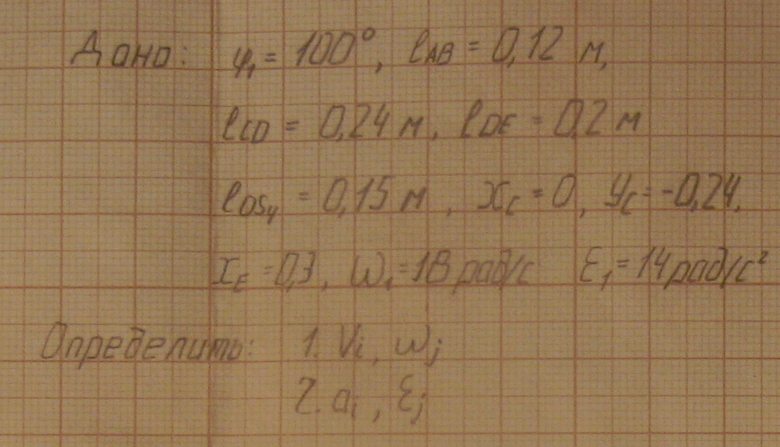 Дано: φ₁ = 100°, ℓAB = 0,12 м,
ℓCD = 0,24 м, ℓDE = 0,2 м
ℓDS₄ = 0,15 м, xC = 0, yC = -0,24,
xE = 0,3, ω₁ = 18 рад/с ε₁ = 14 рад/с²
Определить: 1. Vi, ωj
2. ai, εj